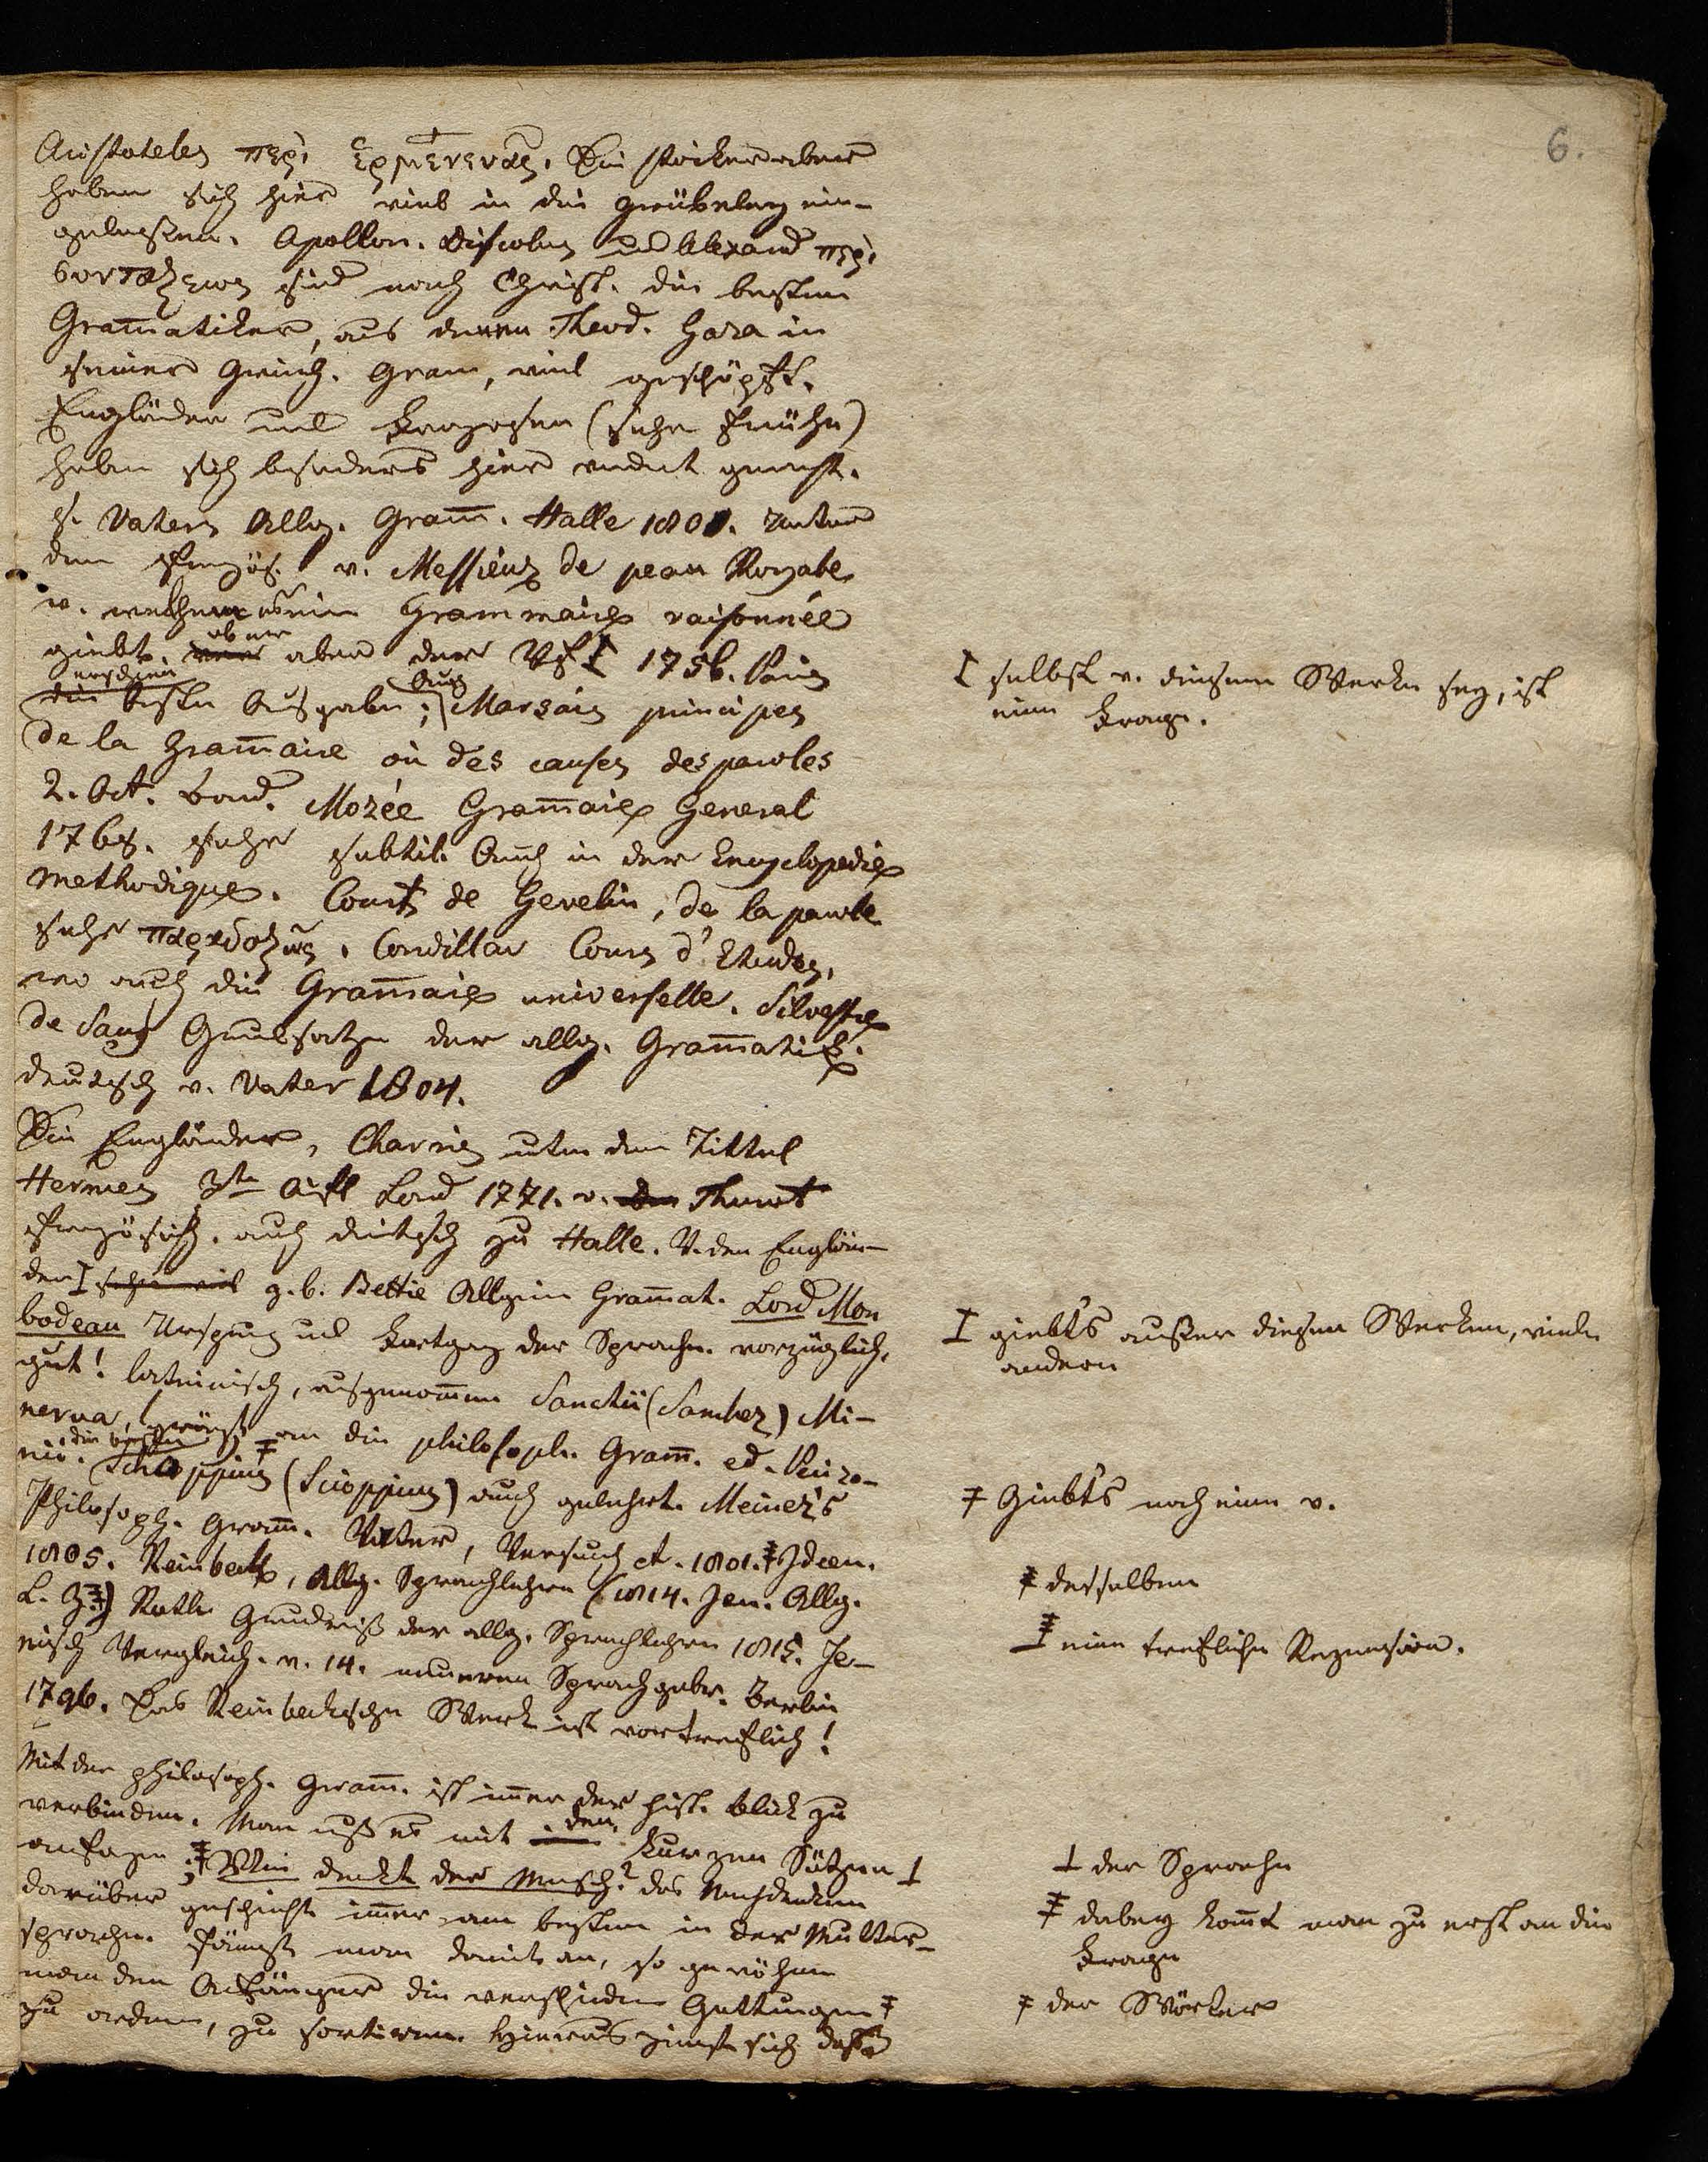 6.
Aristoteles περὶ ἑρμενενας. Die Stoicker aber
haben sich hier viel in die Grübeley ein-
gelassen. Apollon. Discolus und Alexand περὶ
συνταξεως sind nach Christ. die besten
Gram̄atiker, aus denen Theod. Gaza in
seiner Griech. Gram, viel geschöpft.
Engländer und Franzosen (sehr frühe)
haben sich besonders hier verdient gemacht.
s. Vaters Allg. Gram̄. Halle 1801. Unter
den Französ. v. Messieurs de
v. welchem eine Grammaire raisonnée
giebt. ob er aber der Vf I 1756. Paris
die beste Ausgabe; Auch Marsais principes
de la Gram̄aire où des causes des paroles
2. Oct. Band. Mozée Gram̄aire General
sehr subtil. Auch in der Encyclopedie
methodique. Court de Gevelin, de la parole
sehr παραδοξως. Condillac Cours d'Etudes,
wo auch die Gram̄aire universelle. Silvestre
de Sacy Grundsätze der allg. Gram̄atik.
deutsch v. Vater 1804.
Die Engländer, Charris unter dem Tittel
Hermes 3te Aufl Lond 1771. v. Thurot
französisch. auch deutsch zu Halle. V. den Englän-
der I z. b. Bettie Allgem Gram̄at. Lord Mon
bodeau Ursprung und Fortgang der Sprache. vorzüglich
gut! lateinisch, ausgenom̄en Sanctii (Sanchez) Mi-
nerva, die beste an die philosoph. Gram̄. ed.
Schoppius (Scioppius) auch gelehrt. Meiner's
Philosoph. Gram̄. Vater, Versuch et. 1801. ǂ Ideen.
1805. Reinbeck, Allg. Sprachlehre (1814. Jen. Allg.
L. Z. ǂ) Roth Grundriß der allg. Sprachlehre 1815. Je-
nisch Vergleich. v. 14. neueren Sprach Berlin
1796. Das Reinbeckische Werk ist vortreflich!
Mit der philosoph. Gram̄. ist im̄er der hist. Blick zu
verbinden. Man muß es mit den kurzen Sätzen ⊥
anfangen; ǂ Wie denkt der Mensch? das Nachdenken
darüber geschieht im̄er am besten in der Mutter-
sprache. Fängt man damit an, so gewöhne
man den Anfänger die verschiedene Gattungen ǂ
zu ordnen, zu sortiren. Hieraus zeigt sich daß
I selbst v. diesem Werke sey, ist
eine Frage.
I giebt's außer diesen Werken, viele
andern
ǂ Giebt's noch eine v.
ǂ desselben
ǂ eine trefliche Rezension.
⊥ der Sprache
ǂ dabey kom̄t man zu erst an die
Frage
ǂ der Wörter